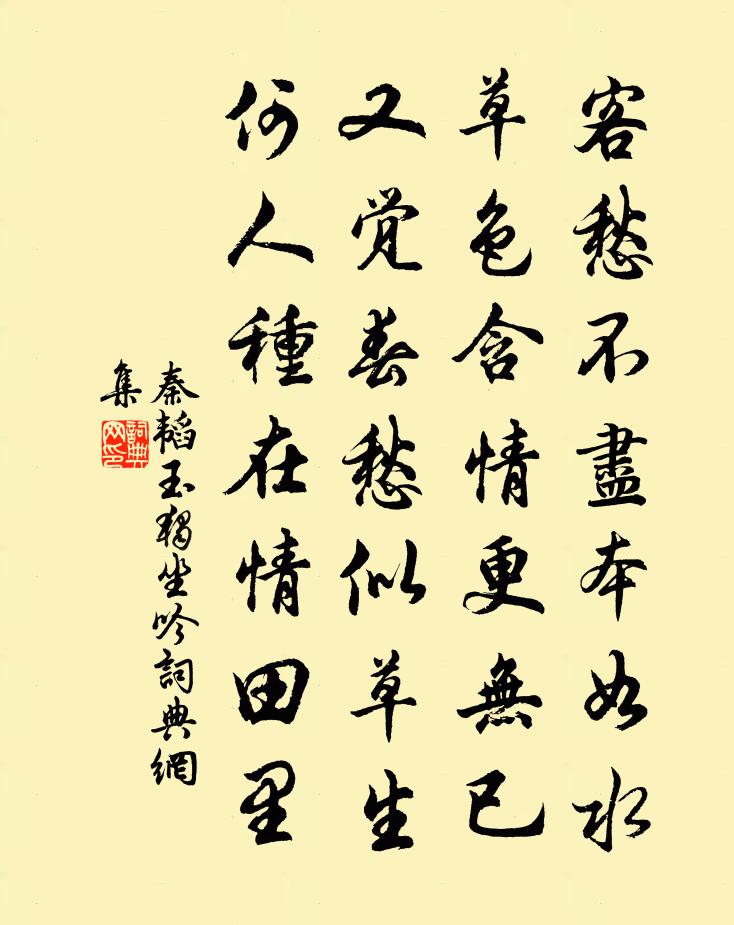 客愁不盡本如水
草色含情更無已
又觉春愁似草生
何人種在情田里
秦韬玉獨坐吟詞典網
集
詞典
网印